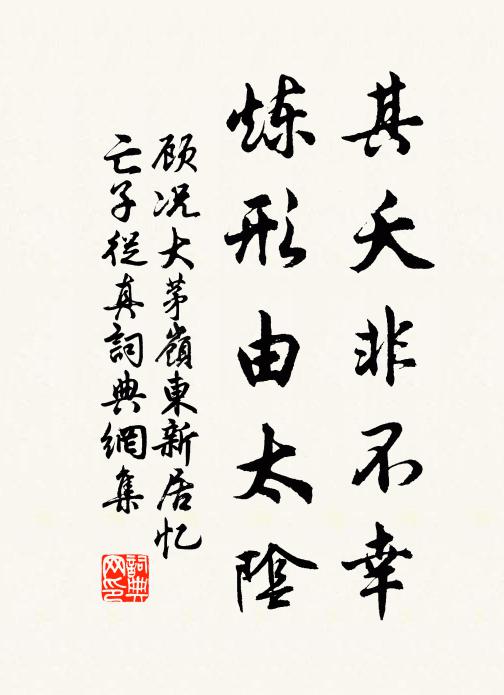 其夭非不幸
炼形由太陰
顾况大茅嶺東新居忆
亡子從真詞典網集
詞典网印